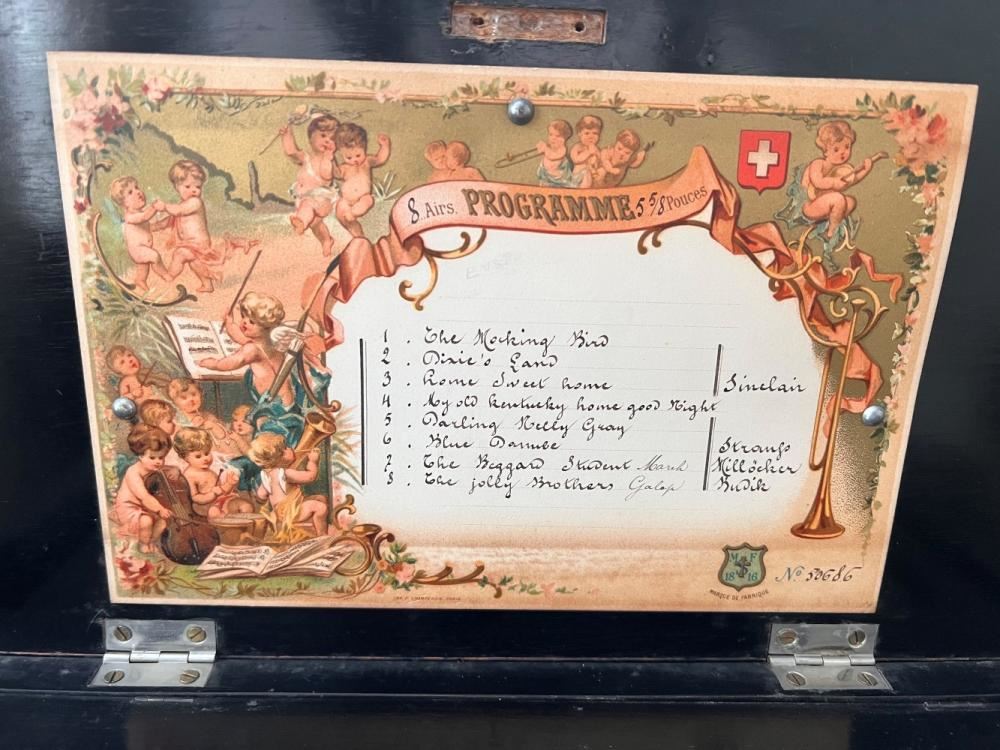 8 Airs. PROGRAMME 5 5/8 Pouces
1. The Mocking Bird
2. Dixie's Land
3. home Sweet home Sinclair
4. My old kentucky home good Night
5. Darling Nelly Gray
6. Blue Danube Strauss
7. The Beggard Student March Millöcker
8. The jolly Brothers Galop Budik
M F
18 16
MARQUE DE FABRIQUE
No 50686